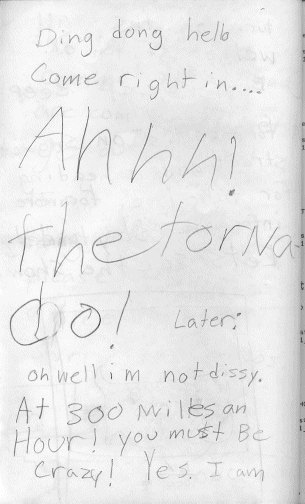 Ding dong hello
Come right in....
Ahhh!
the torna
do!
Later:
oh well i m not dissy.
At 300 Miles an
Hour! you must Be
Crazy! Yes. I am